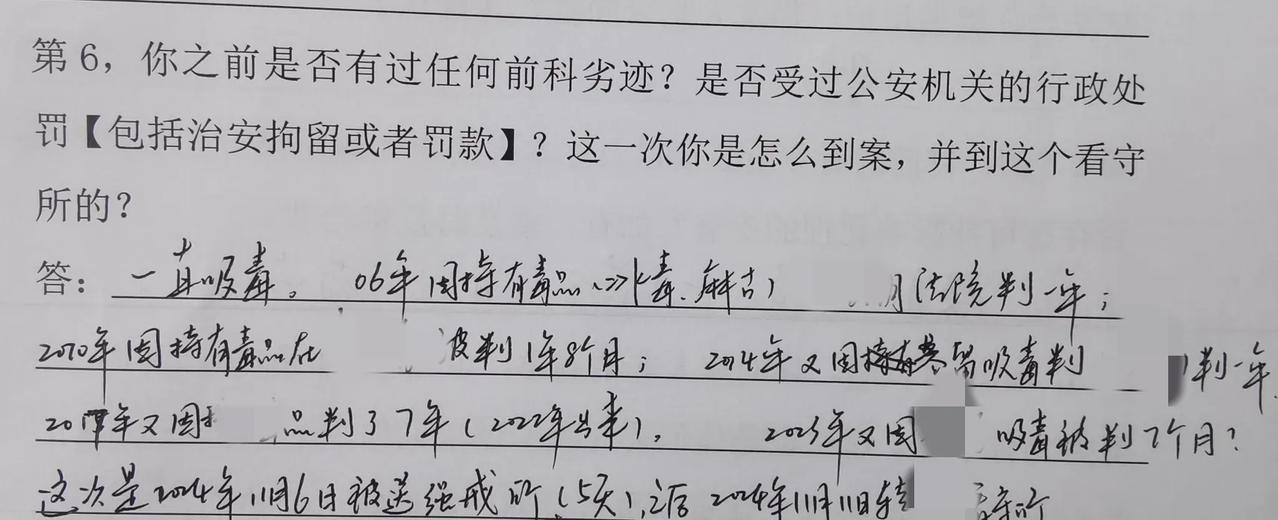 第6，你之前是否有过任何前科劣迹？是否受过公安机关的行政处
罚【包括治安拘留或者罚款】？这一次你是怎么到案，并到这个看守
所的？
答：一直吸毒。06年因持有毒品（冰毒、麻古） 法院判一年；
2010年因持有毒品在 被判1年8个月； 2014年又因容留吸毒判 判一年
年又因 品判了7年（2022年出来）， 2023年又因 吸毒被判7个月？
这次是2024年11月6日被送强戒所（5天），之后2024年11月11日转